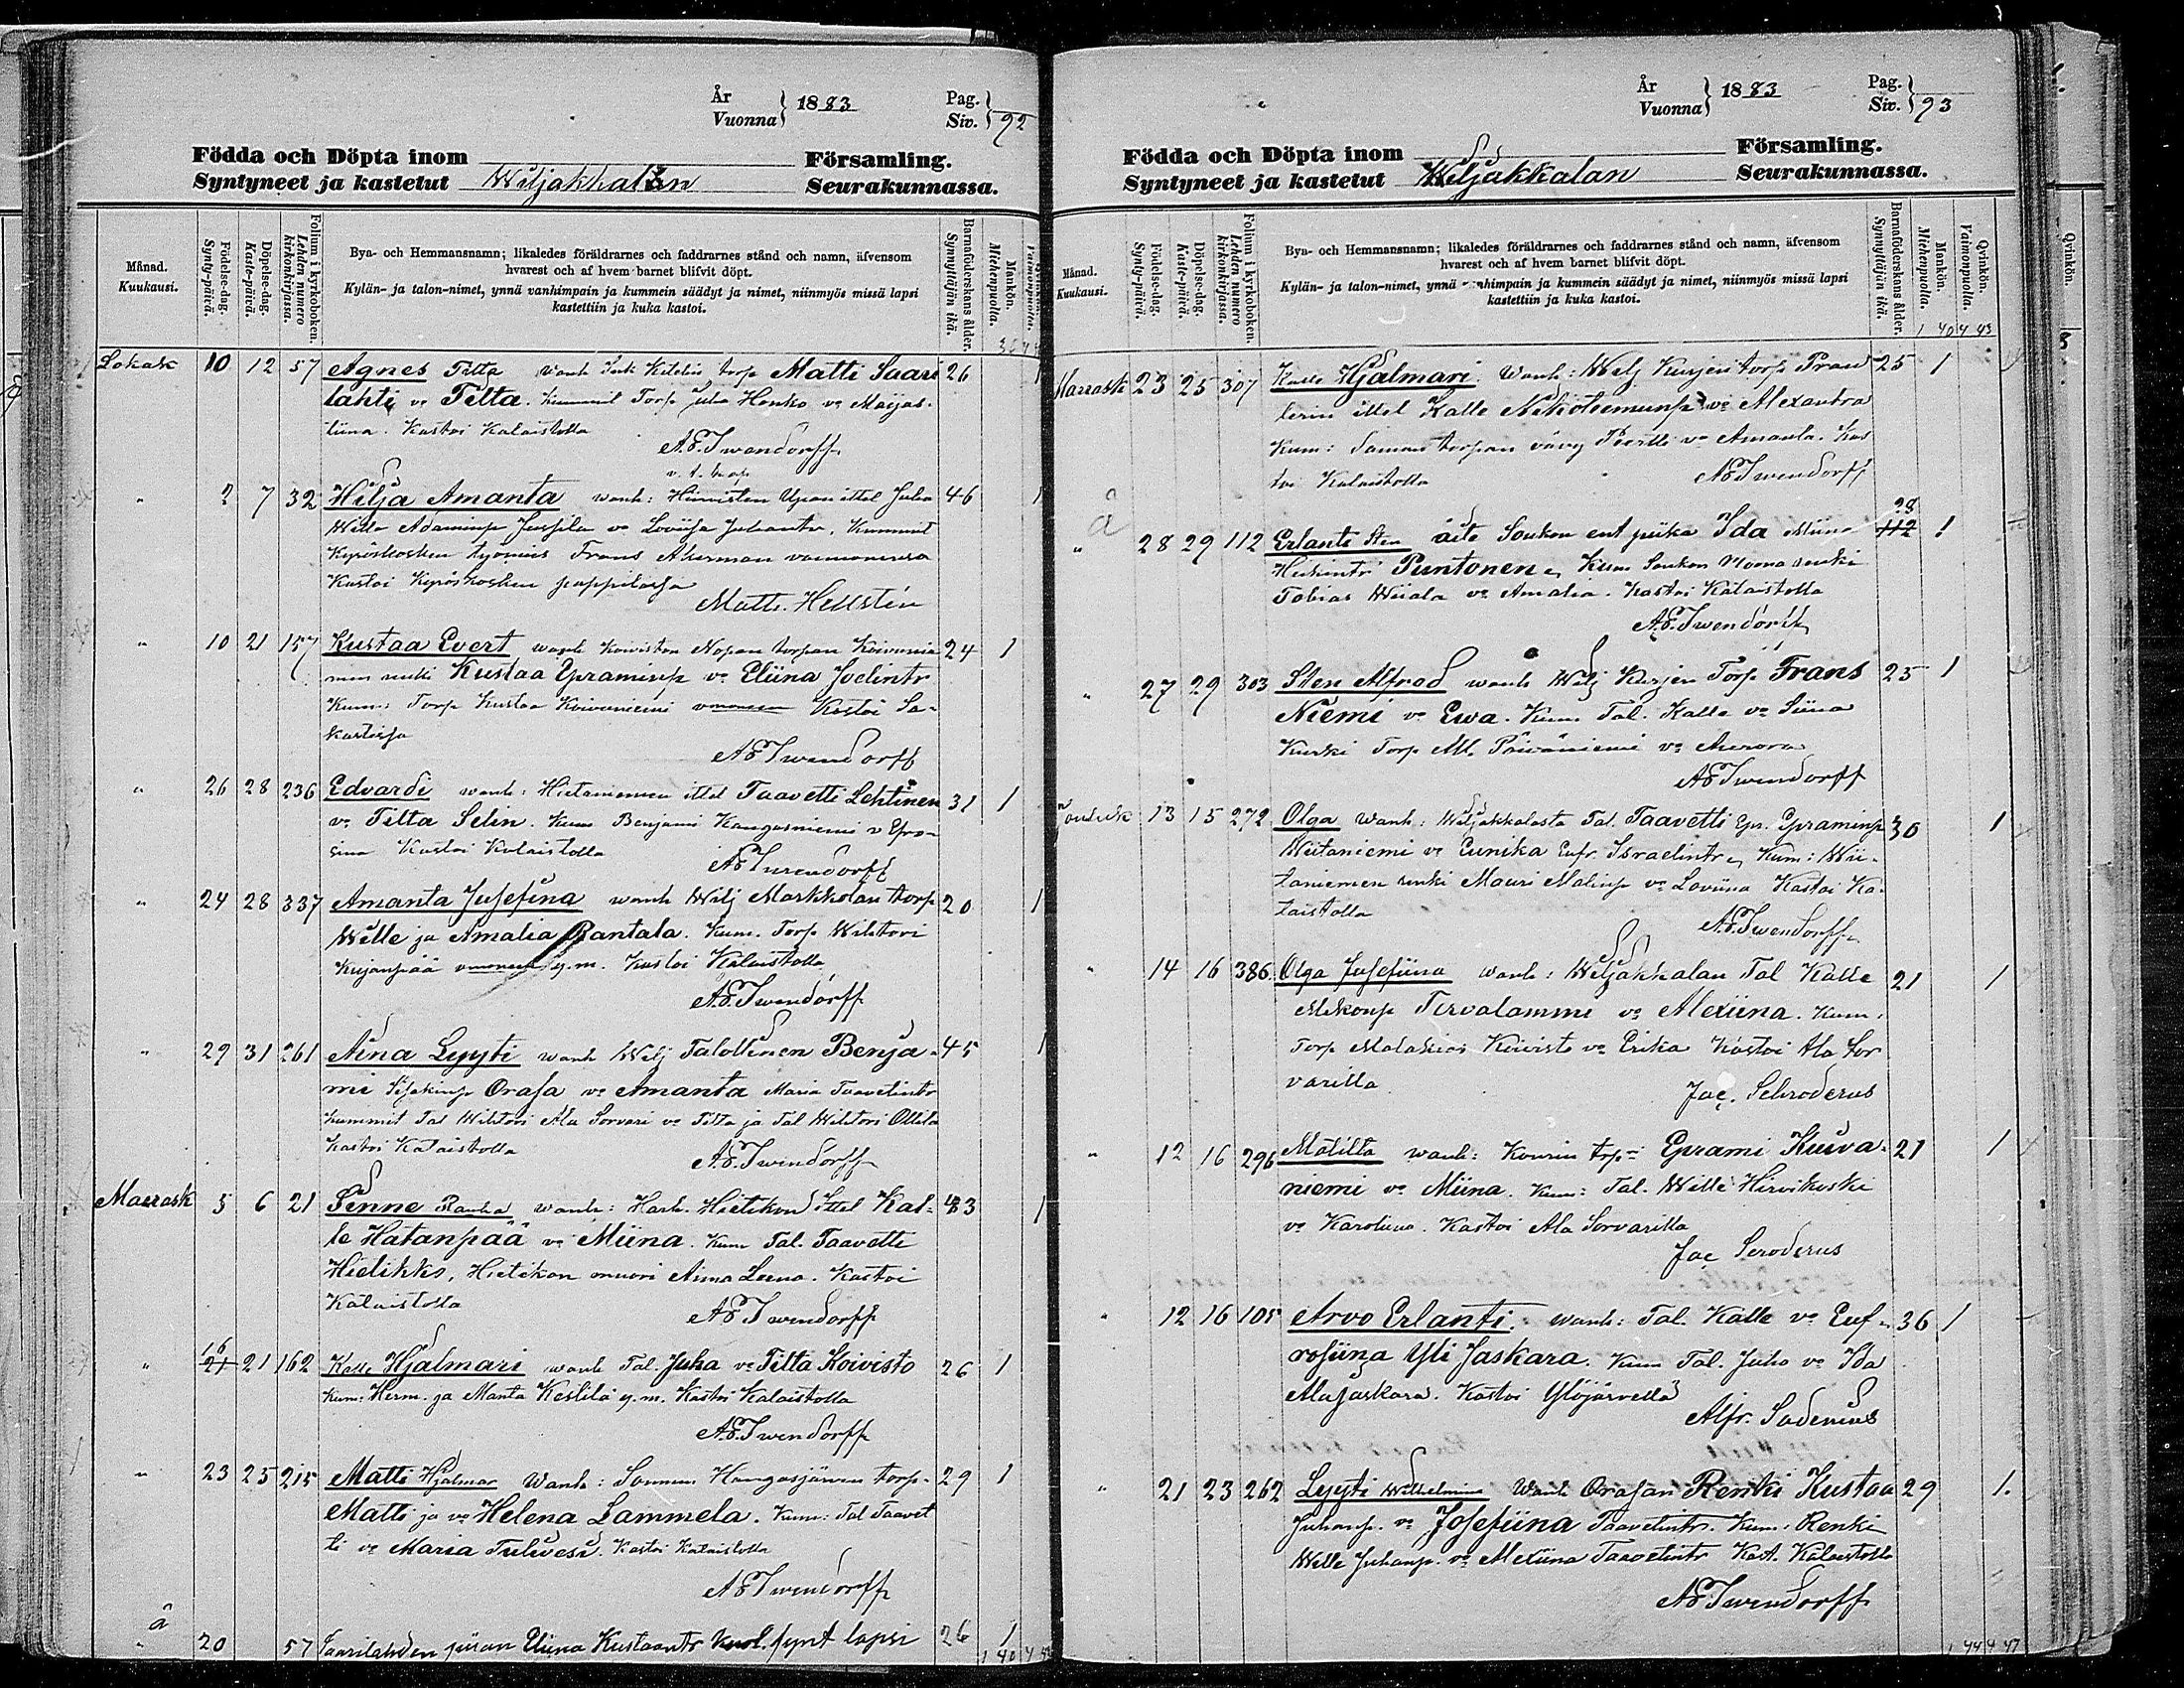 År
Vuonna } 1883
Pag.
Siv. } 92
Födda och Döpta inom Församling.
Syntyneet ja kastetut Wiljakkalan Seurakunnassa.
Månad.
Kuukausi.
Födelse-dag.
Synty-päivä.
Döpelse-dag.
Kaste-päivä.
Folium i kyrkoboken.
Lehden numero kirkonkirjassa.
Bya- och Hemmansnamn; likaledes föräldrarnes och faddrarnes stånd och namn, äfvensom
hvarest och af hvem barnet blifvit döpt.
Kylän- ja talon-nimet, ynnä vanhimpain ja kummein säädyt ja nimet, niinmyös missä lapsi
kastettiin ja kuka kastoi.
Barnaföderskans ålder.
Synnyttäjän ikä.
Mankön.
Miehenpuolta.
Lokak 10 12 57 Agnes Tilta wanh Matti Saari 26 1
lahti vo Tilta. Kummit Torp Juha Honko vo Maijas-
tiina. Kastoi Kalaistolla
A.E. Twendorff
" 2 7 32 Hilja Amanta wanh: ittel Juha 46 1
Wille Adaminp vo Loviisa Juhantr. Kummit
Kyröskosken työmies Frans Akerman vaimonensa
Kastoi Kyröskosken pappilassa
Matts. Hellstén
" 10 21 157 Kustaa Evert wanh Koiviston torpan Koivunie 24 1
men renki Kustaa Epraminp vo Eliina Joelintr
Kum: Torp Kustaa Koivuniemi Kastoi Sa-
kastissa
A E Twendorff
" 26 28 236 Edvardi wanh: Hietaniemen ittel Taavetti Lehtinen 31 1
vo Tilta Selin. Kum Benjami Kangasniemi v Efro-
sina Kastoi Kalaistolla
A E Twendorff
" 24 28 337 Amanta Josefina wanh Wilj Markkolan torp 20 1
Wille ja Amalia Rantala. Kum. Torp Wihtori
Kujanpää y.m. Kastoi Kalaistolla
A.E. Twendorff
" 29 31 261 Aina Lyyti wanh Wilj Talottinen Benja- 45 1
mi Orasa vo Amanta Maria Taavetintr
Kummit Tal Wihtori Ala Sorvari vo Tilta ja Tal Wihtori Ollila
Kastoi Kalaistolla
A.E. Twendorff
Marrask 5 6 21 Senne Rauha wanh: Hark. Hietikon Ittel Kal- 43 1
le Hatanpää vo Miina. Kum Tal. Taavetti
Hietikko, Hietikon muori Anna Leena. Kastoi
Kalaistolla
A E Twendorff
16
" 21 21 162 Kalle Hjalmari wanh Tal. Juha vo Tilta Koivisto 26 1
Kum: Herm. ja Manta Kestilä y.m. Kastoi Kalaistolla
A.E. Twendorff
" 23 25 215 Matti Hjalmar Wanh: Hangasjärven torp- 29 1
Matti ja vo Helena Lammela. Kum: Tal Taavet
ti vo Maria Tulivesi. Kastoi Kalaistolla
A E Twendorff
a
" 20 57 Saarilahden piian Eliina Kustaantr kuol. synt lapsi 26 1
1 40 4
År
Vuonna } 1883
Pag.
Siv. } 93
Födda och Döpta inom Församling.
Syntyneet ja kastetut Wiljakkalan Seurakunnassa.
Månad.
Kuukausi.
Födelse-dag.
Synty-päivä.
Döpelse-dag.
Kaste-päivä.
Folium i kyrkoboken.
Lehden numero kirkonkirjassa.
Bya- och Hemmansnamn; likaledes föräldrarnes och faddrarnes stånd och namn, äfvensom
hvarest och af hvem barnet blifvit döpt.
Kylän- ja talon-nimet, ynnä vanhimpain ja kummein säädyt ja nimet, niinmyös missä lapsi
kastettiin ja kuka kastoi.
Barnaföderskans ålder.
Synnyttäjän ikä.
Mankön.
Miehenpuolta.
Qvinkön.
Vaimonpuolta.
1 40 4 43
Marrask 23 25 307 Kalle Hjalmari. Wanh: Wilj Kurjen torp 25 1
ittel Kalle vo Alexandra
Kum: Saman torpan vävy Pertti vo Amanta. Kas
toi Kalaistolla
A E Twendorff
a 28
" 28 29 112 Erlanti Sten äite Soukon ent piika Ida Miina 112 1
Heikintr Puntonen, Kum Soukon renki
Tobias Wiiala vo Amalia. Kastoi Kalaistolla
A.E. Twendorff
" 27 29 303 Sten Alfred wanh Wilj Kurjen Torp Frans 25 1
Niemi vo Ewa. Kum. Tal. Kalle vo Siina
Kurki Torp M. Päiväniemi vo Aurora
A E Twendorff
Jouluk 13 15 272 Olga Wanh: Wiljakkalasta Tal. Taavetti Epr. Epraminp 30 1
Wiitaniemi vo Eunika Eufr. Israelintr, Kum: Wii-
taniemen renki Mauri Malinp vo Loviina Kastoi Ka-
laistolla
A.E. Twendorff
" 14 16 386 Olga Josefiina wanh: Wiljakkalan Tal Kalle 21 1
Mikonp Tervalammi vo Alexiina. Kum.
Torp Malakias Koivisto vo Erika Kastoi Ala Sor
varilla
Jac. Schroderus
" 12 16 296 Matilta wanh: Kourin trp Eprami Kuiva- 21 1
niemi vo Miina. Kum: Tal. Wille Hirvikoski
vo Karoliina. Kastoi Ala Sorvarilla
Jac Scroderus
" 12 16 105 Arvo Erlanti. wanh: Tal. Kalle vo Euf- 36 1
rosiina Yli Jaskara. Kum Tal. Juho vo Ida
Alajaskara. Kastoi Ylöjärvellä
Alfr. Sadenius
" 21 23 262 Lyyti Wilhelmina Wanh Orasan Renki Kustaa 29 1.
Juhanp. vo Josefiina Taavetintr. Kum: Renki
Wille Juhanp. vo Alexiina Taavetintr Kast. Kalaistolla
A E Twendorff
1 44 4 47